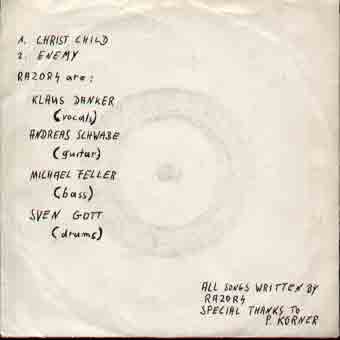 1. CHRIST CHILD
2. ENEMY
RAZORS are:
KLAUS DANKER
(vocals)
ANDREAS SCHWABE
(guitar)
MICHAEL FELLER
(bass)
SVEN GOTT
(drums)
ALL SONGS WRITTEN BY
RAZORS
SPECIAL THANKS TO
P. KÖRNER